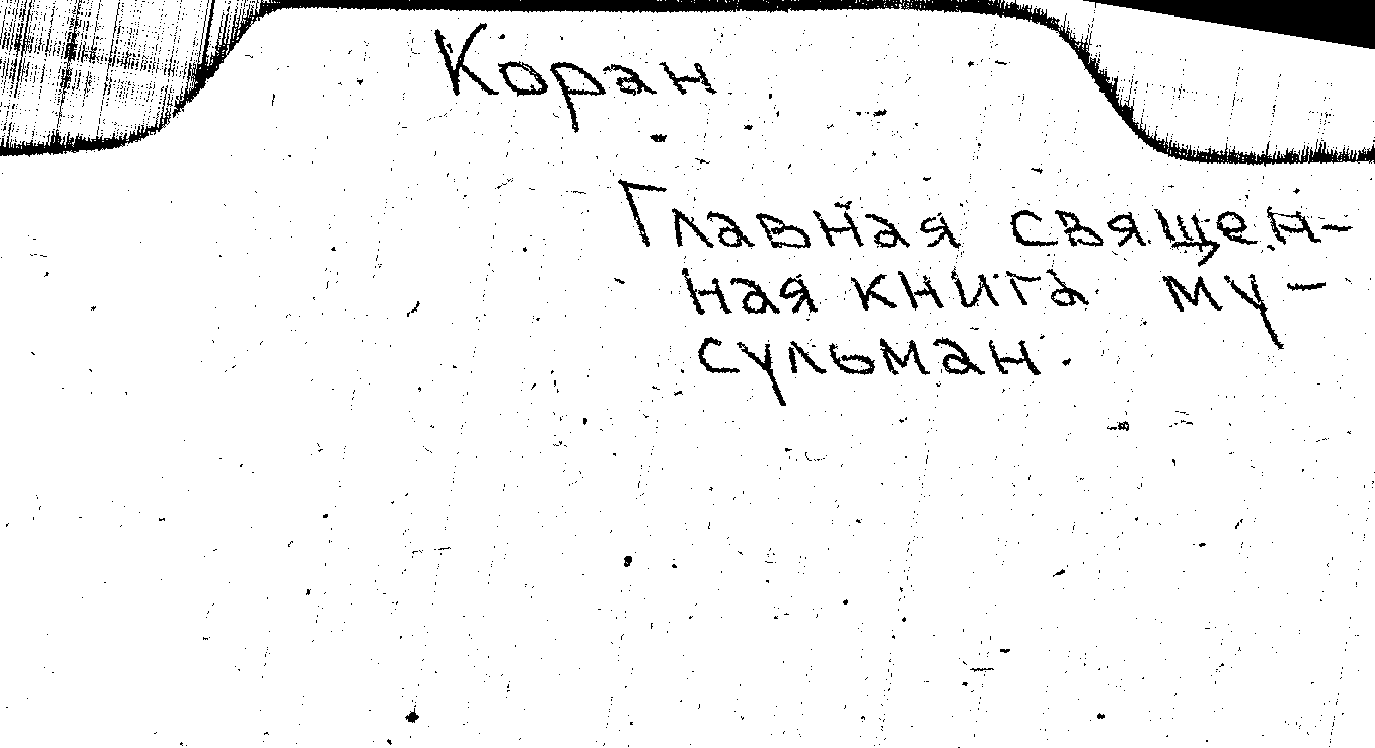 Коран
Главная священ-
ная книга му-
сульман.